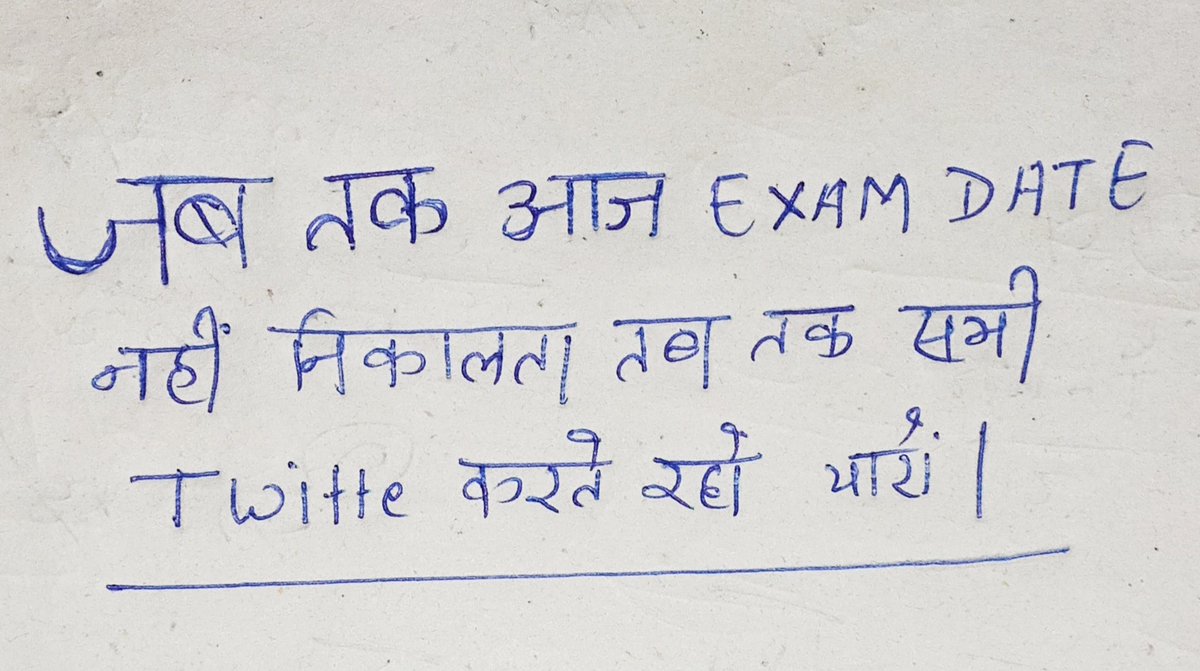 जब तक आज EXAM DATE
नहीं निकालता तब तक सभी
Twitte करते रहो यारों।